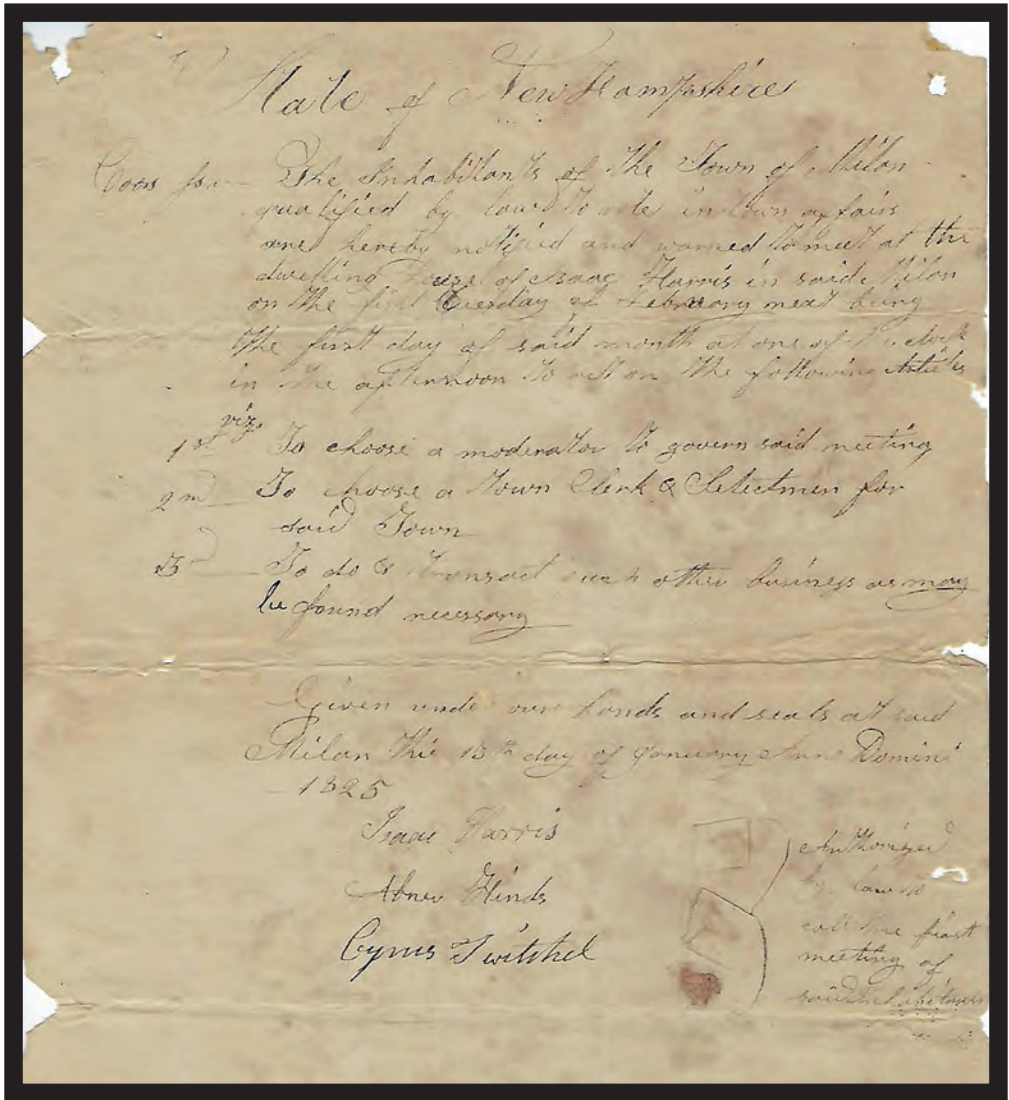 State of New Hampshire
Coos ss The Inhabitants of the Town of Milan
qualified by law to vote in town affairs
are hereby notified and warned to meet at the
dwelling house of Isaac Harris in said Milan
on the first Tuesday of February next being
the first day of said month at one of the clock
in the afternoon to act on the following Articles
viz.
1st To choose a moderator to govern said meeting
2nd To choose a Town Clerk & Selectmen for
said Town
3d To do & transact such other business as may
be found necessary
Given under our hands and seals at said
Milan this 15th day of January Anno Domini
1825
Isaac Harris
Abner Hinds
Cyrus Twitchel
Authorized
by law to
call the first
meeting of
said Inhabitants